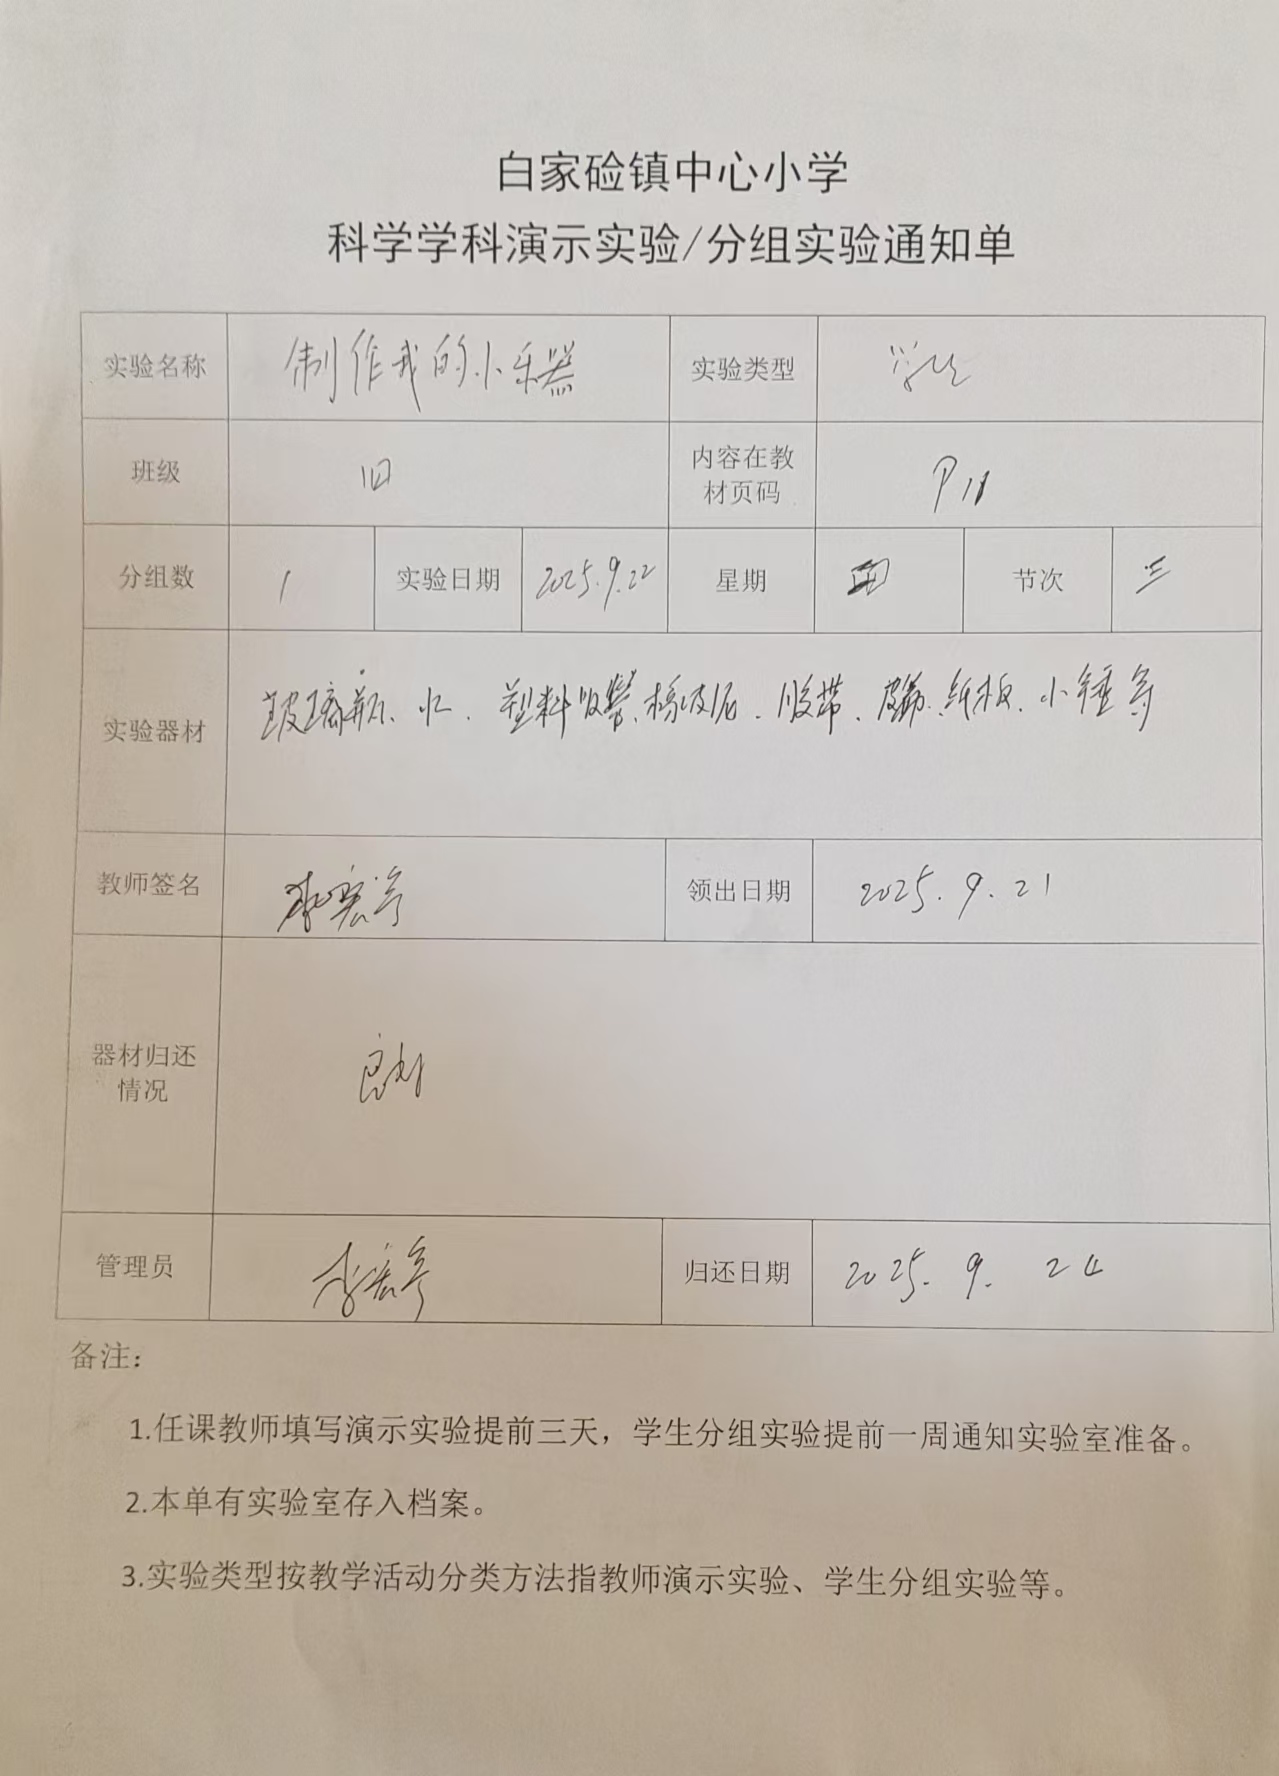 白家硷镇中心小学
科学学科演示实验/分组实验通知单
实验名称 制作我的小乐器 实验类型 学生
班级 四 内容在教材页码 P11
分组数 1 实验日期 2025.9.22 星期 节次 三
实验器材 玻璃瓶、水、塑料吸管、橡皮泥、胶带、皮筋、纸板、小锤等
教师签名 李宏亭 领出日期 2025.9.21
器材归还情况 良好
管理员 李宏亭 归还日期 2025.9.24
备注：
1.任课教师填写演示实验提前三天，学生分组实验提前一周通知实验室准备。
2.本单有实验室存入档案。
3.实验类型按教学活动分类方法指教师演示实验、学生分组实验等。